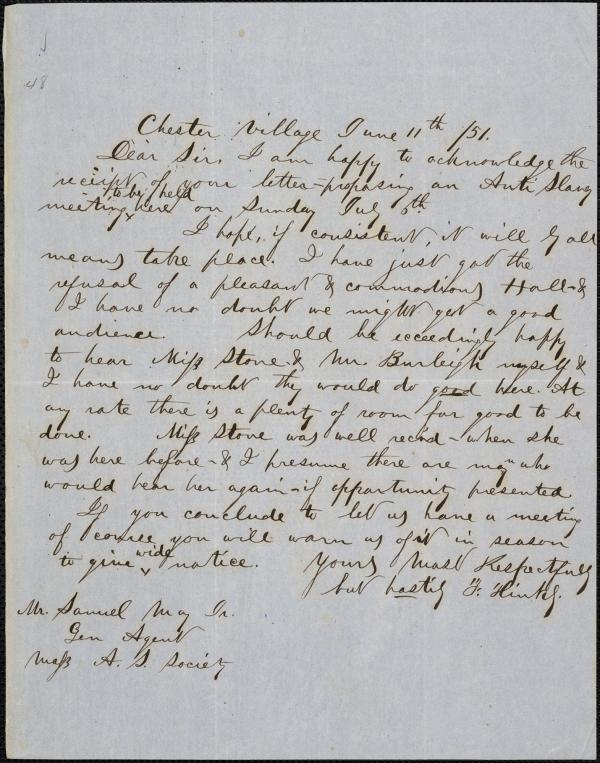 48
Chester Village June 11th /51.
Dear Sir, I am happy to acknowledge the
receipt of your letter - proposing an Anti Slavery
to be held
meeting here on Sunday July 6th
I hope, if consistent, it will by all
means take place. I have just got the
refusal of a pleasant & commodious Hall - &
I have no doubt we might get a good
audience. Should be exceedingly happy
to hear Miss Stone & Mr. Burleigh myself &
I have no doubt they would do good here. At
any rate there is a plenty of room for good to be
done. Miss Stone was well rec'd - when she
was here before - & I presume there are many who
would hear her again - if opportunity presented
If you conclude to let us have a meeting
of course you will warn us of it in season
to give wide notice. Yours Most Respectfully
but hastily F. Hinkly.
Mr. Samuel May Jr.
Gen Agent
Mass A. S. Society